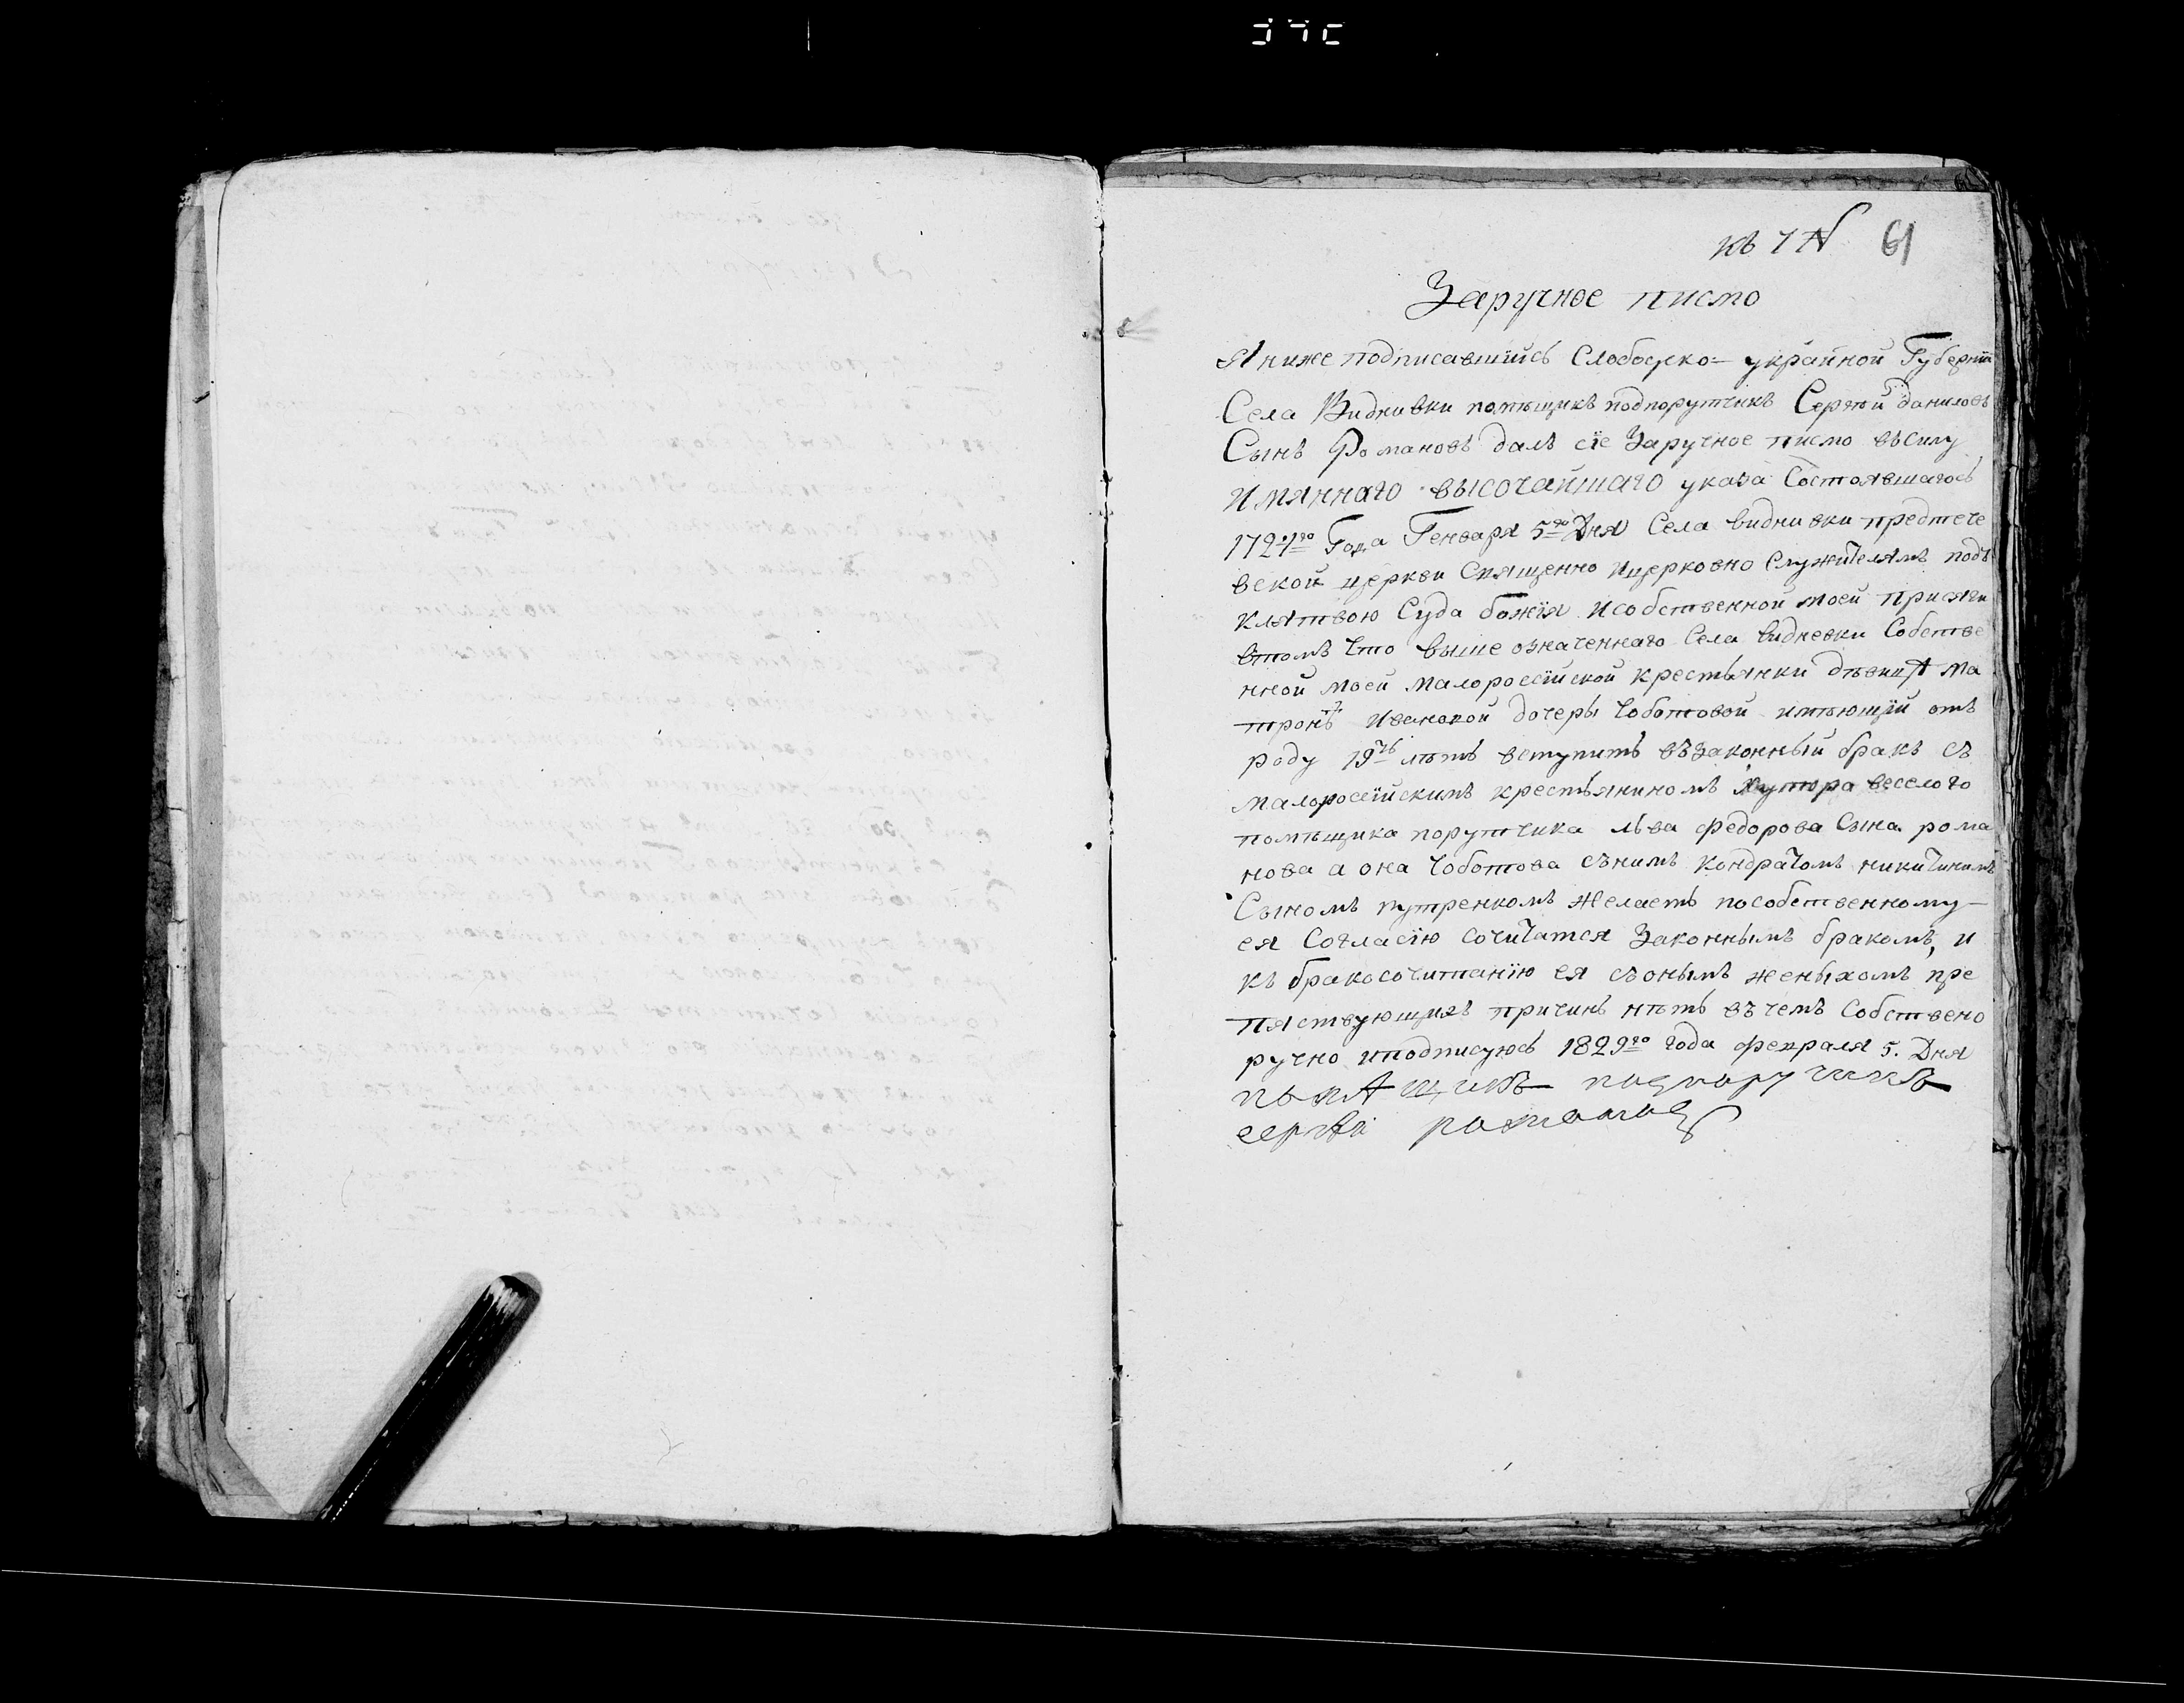 къ 7 N 61
Заручное писмо
Я ниже подписавшийсь Слободско= украйной Губернїи
Села Виднивки помѣщикъ подпорутчикъ Сергѣй даниловъ
Сынъ Романовъ далъ сїе Заручное писмо въсилу
Имяннаго высочайшаго указа Состоявшагось
1724го Года Генваря 5го Дня Села видни вки предтече
вской церкви Священно ицерковно Служителямъ подъ
клятвою Суда божїя исобственной моей присяги
втомъ что выше означеннаго Села видневки Собстве
нной моей малороссїйской крестьянки дѣвки Ма
тронѣ Ивановой дочеры Чоботовой имѣющїй отъ
роду 19ть лѣтъ вступить възаконный бракъ съ
малоросїйскимъ крестьяниномъ Хутора веселого
помѣщика порутчика льва федорова Сына рома
нова а она Чоботова снимъ кондратомъ никитинимъ
Сыномъ путренкомъ желаетъ пособственному
ея Согласїю сочитатся Законнымъ бракомъ, и
къ бракосочитанїю ея съонымъ женыхомъ пре
пяствующихъ причинъ нѣтъ въчемъ Собствено
ручно иподписуюсь 1829го года февраля 5. Дня
помѣщикъ подпоручикъ
сергѣй романовъ